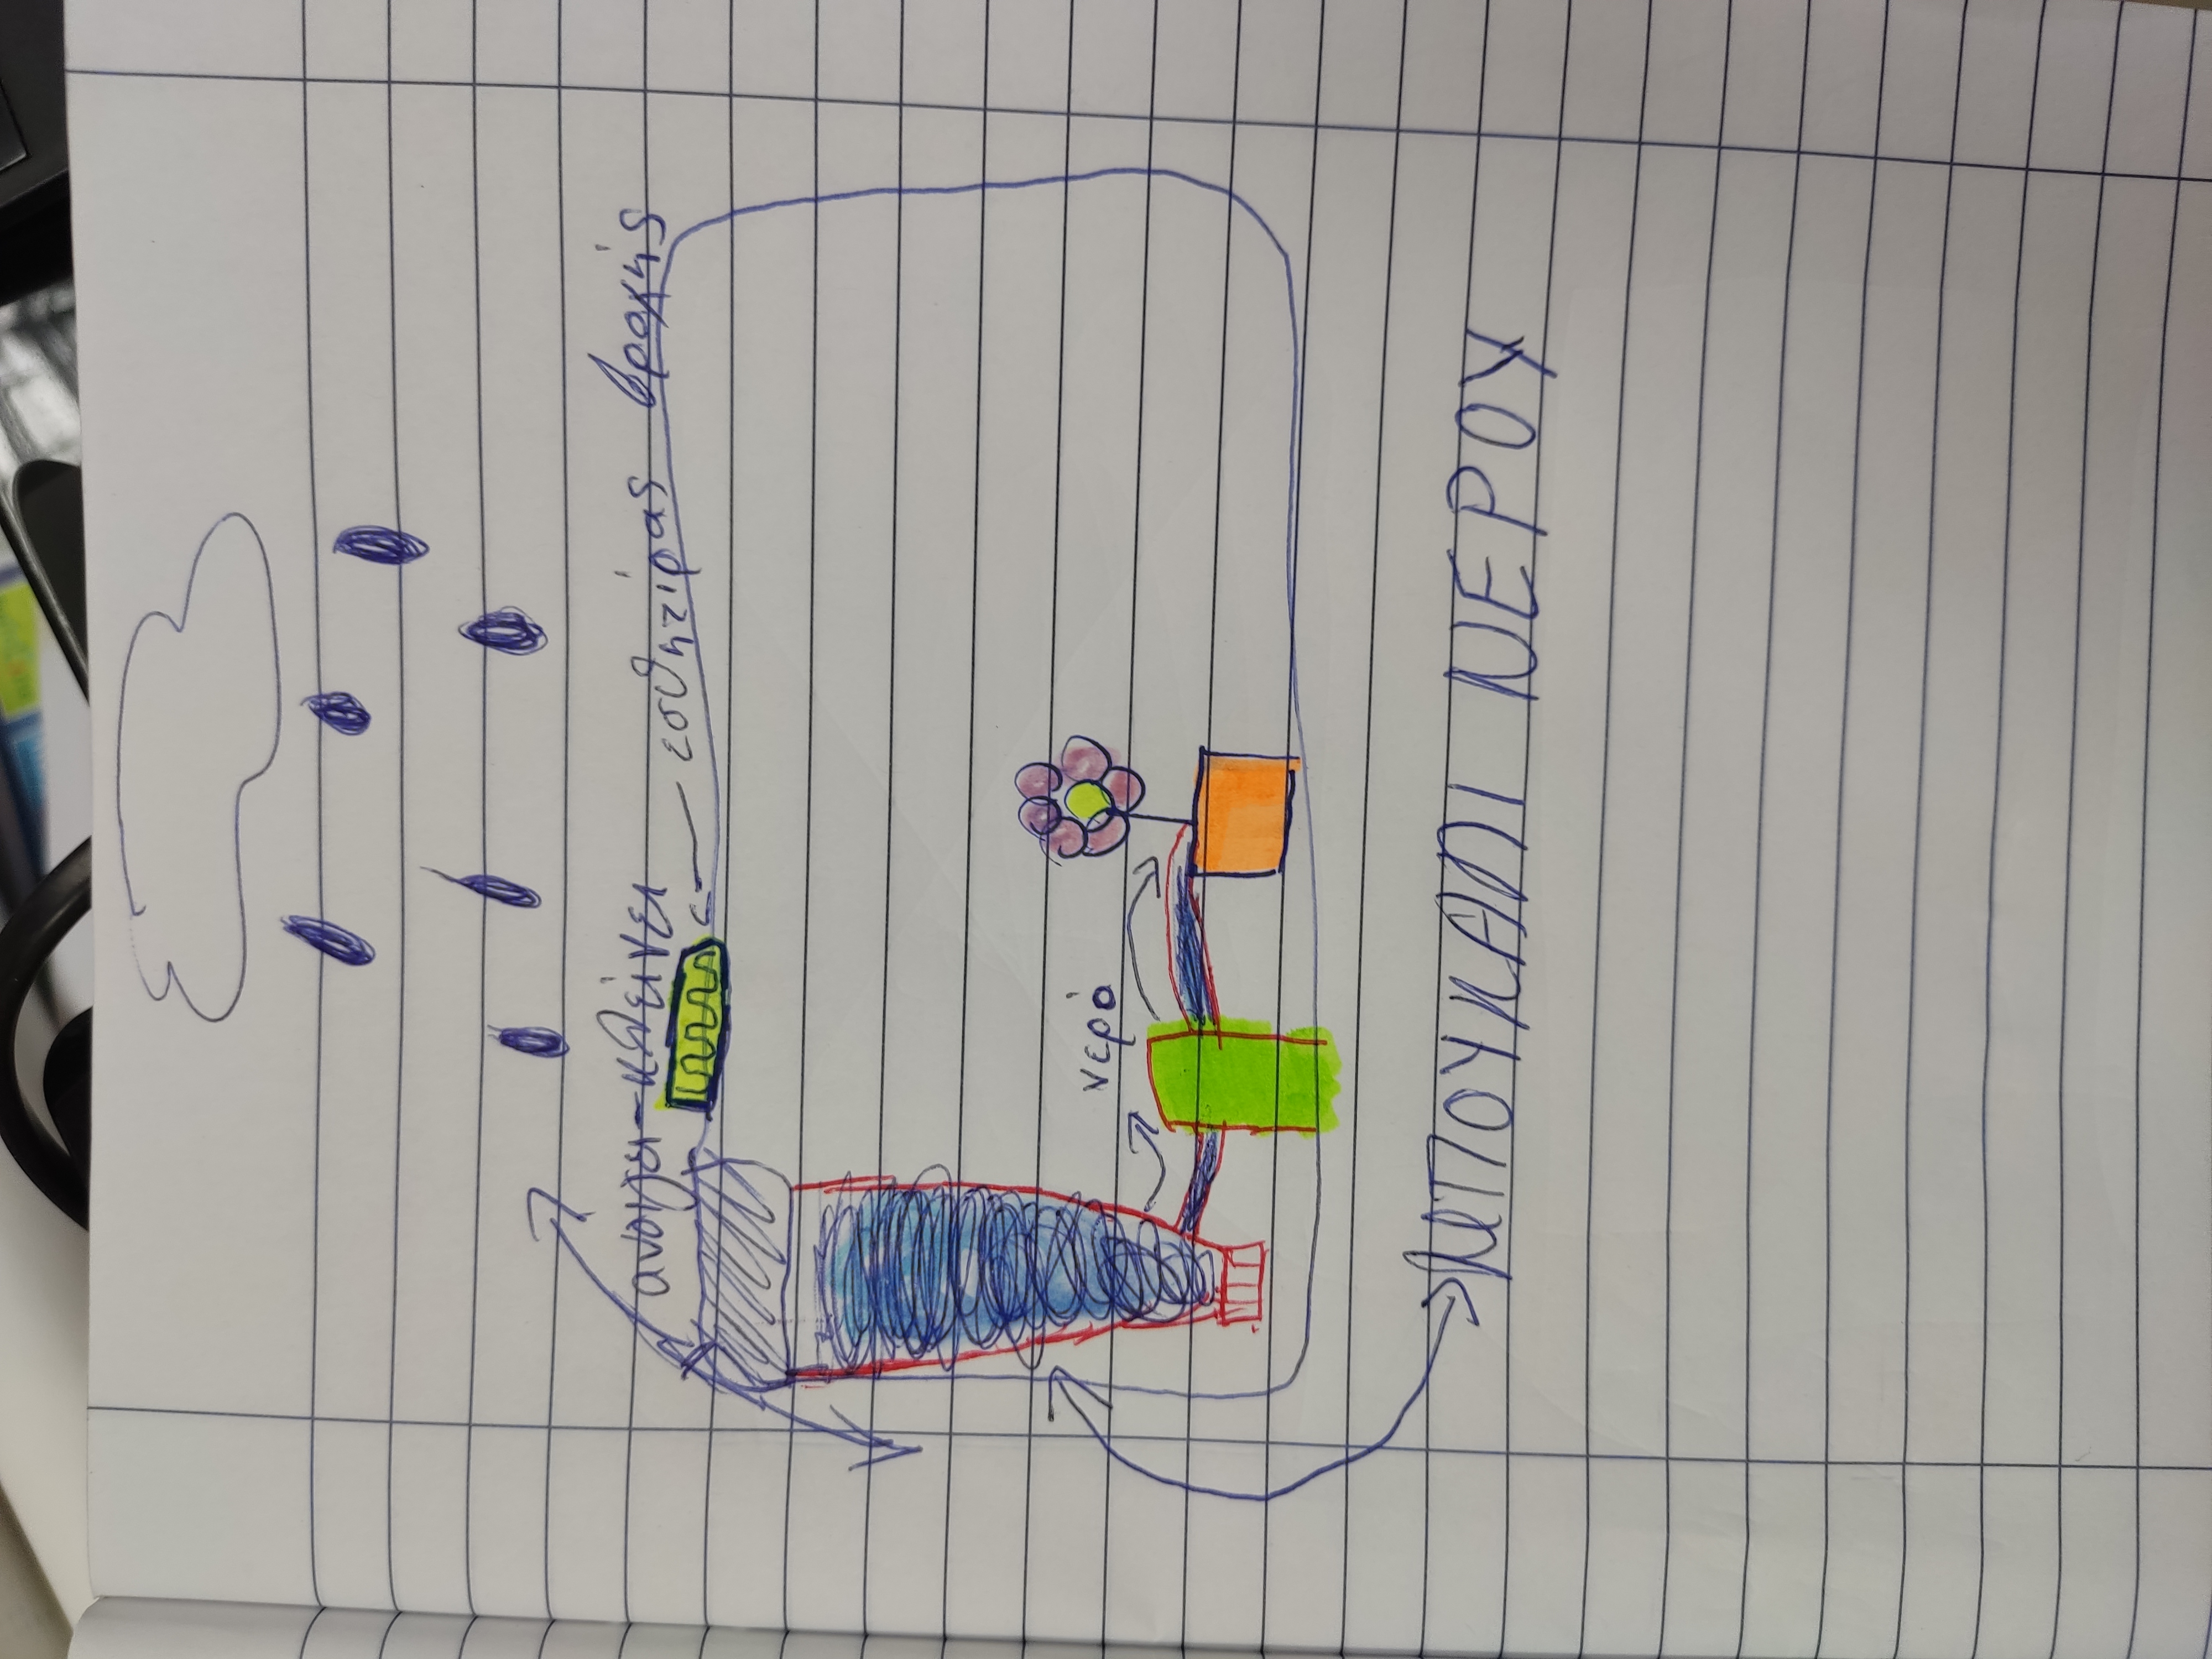 ανοιγει-κλείνει
εσθητίρας βροχής
νερό
ΜΠΟΥΚΑΛΙ ΝΕΡΟΥ